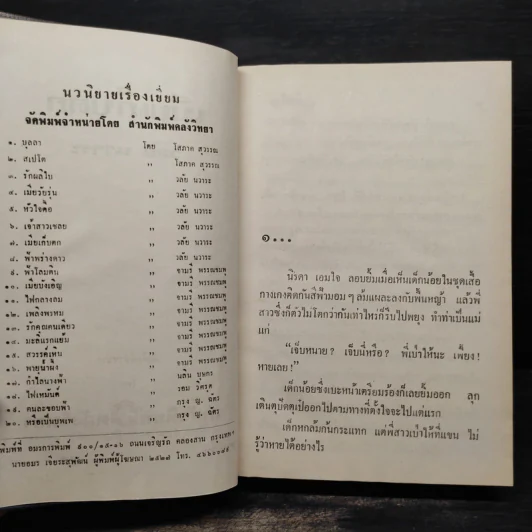 นวนิยายเรื่องเยี่ยม
จัดพิมพ์จำหน่ายโดย สำนักพิมพ์คลังวิทยา
๑. บุลลา โดย โสภาค สุวรรณ
๒. สเปโต ,, โสภาค สุวรรณ
๓. รักผลิใบ ,, วลัย นวาระ
๔. เมียวัยรุ่น ,, วลัย นวาระ
๕. หัวใจคือ ,, วลัย นวาระ
๖. เจ้าสาวเชลย ,, วลัย นวาระ
๗. เมียเก็บตก ,, วลัย นวาระ
๘. ฟ้าพร่างดาว ,, วลัย นวาระ
๙. ฟ้าโลมดิน ,, จามรี พรรณชมพู
๑๐. เมียบังเอิญ ,, จามรี พรรณชมพู
๑๑. ไฟกลางลม ,, จามรี พรรณชมพู
๑๒. เพลิงพรหม ,, จามรี พรรณชมพู
๑๓. รักคุณคนเดียว ,, จามรี พรรณชมพู
๑๔. มะลิแรกแย้ม ,, จามรี พรรณชมพู
๑๕. สวรรค์เหิน ,, จามรี พรรณชมพู
๑๖. พายุน้ำผึ้ง ,, จามรี พรรณชมพู
๑๗. กำไลนางฟ้า ,, นลิน บุษกร
๑๘. ไฟเหมันต์ ,, รอม
๑๙. คนละขอบฟ้า ,, กรุง ญ. ฉัตร
๒๐. หรือเป็นบุพเพ ,, กรุง ญ. ฉัตร
พิมพ์ที่ อมรการพิมพ์ ถนนเจริญรัถ คลองสาน กรุงเทพฯ
นายอมร เจียระสุพัฒน์ ผู้พิมพ์ผู้โฆษณา ๒๕๒๗ โทร.
๑...
นิรดา เอมใจ ลอบยิ้มเมื่อเห็นเด็กน้อยในชุดเสื้อ
กางเกงติดกันสีฟ้ามอมๆ ล้มแผละลงกับพื้นหญ้า แล้วพี่
สาวซึ่งก็ตัวไม่โตกว่ากันเท่าไหร่ก็รีบไปพยุง ทำท่าเป็นแม่
แก่
“เจ็บหนาย? เจ็บนี่หรือ? พี่เป่าให้นะ เพี้ยง!
หายเลย!”
เด็กน้อยซึ่งเบะหน้าเตรียมร้องก็เลยยิ้มออก ลุก
เดินตุปัดตุเป๋ออกไปตามทางที่ตั้งใจจะไปแต่แรก
เด็กหกล้มก้นกระแทก แต่พี่สาวเป่าให้ที่แขน ไม่
รู้ว่าหายได้อย่างไร